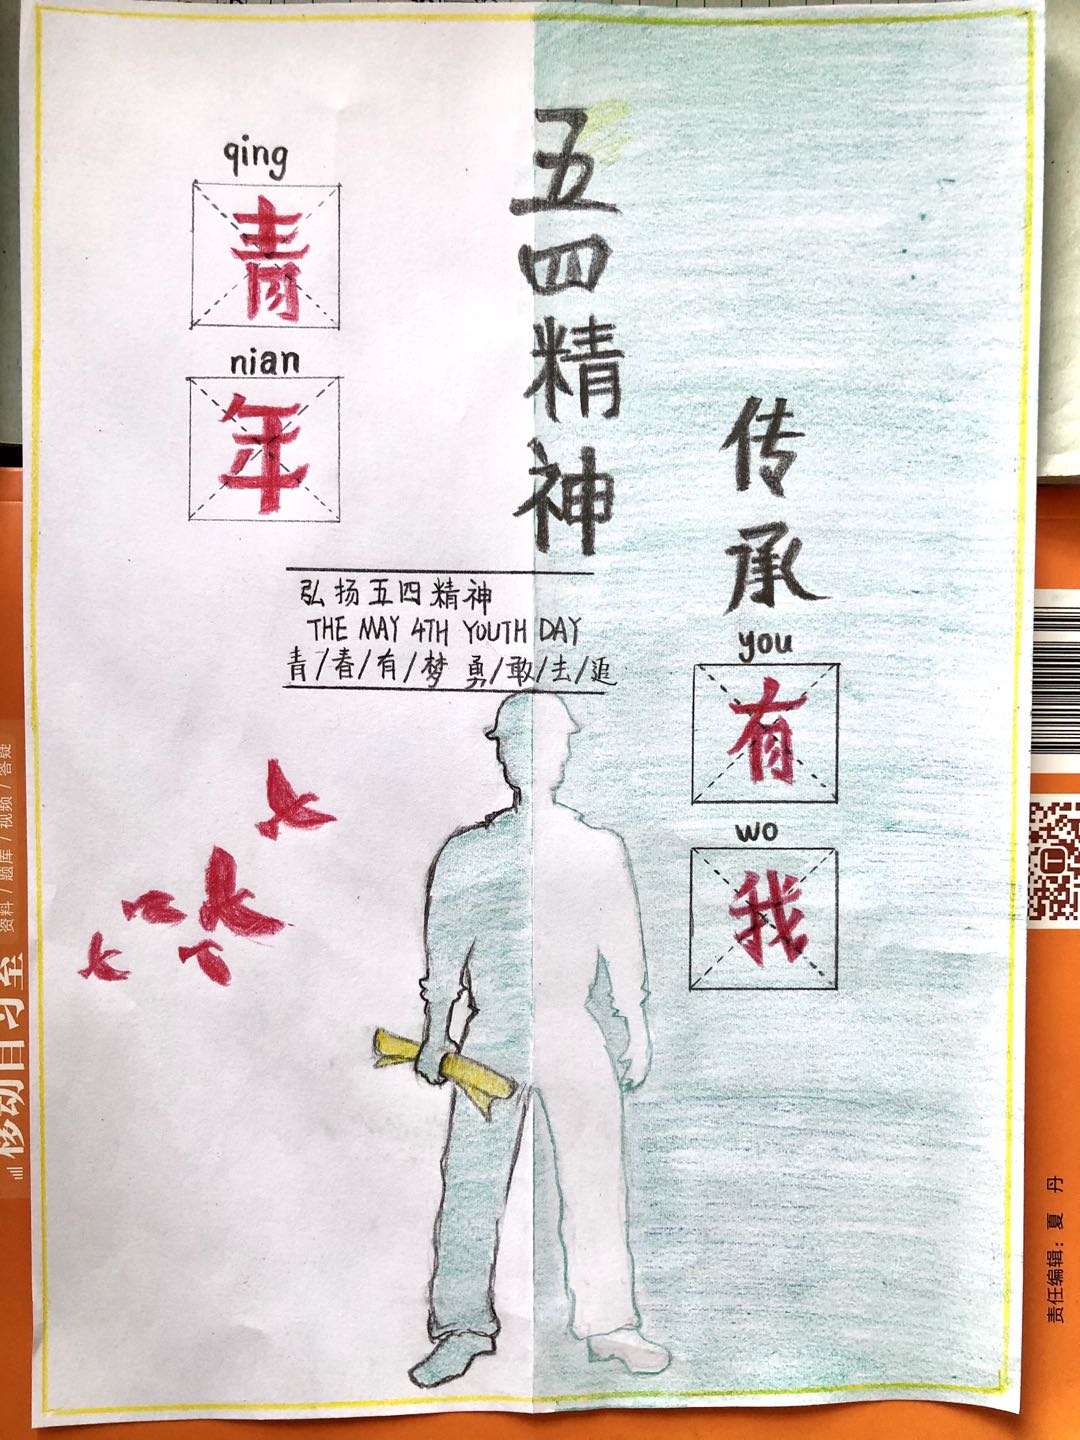 qing
青
nian
年
五四精神
传承
you
有
wo
我
弘扬五四精神
THE MAY 4TH YOUTH DAY
青/春/有/梦 勇/敢/去/追
移动自习室
资料 / 题库 / 视频 / 答疑
责任编辑：夏 丹